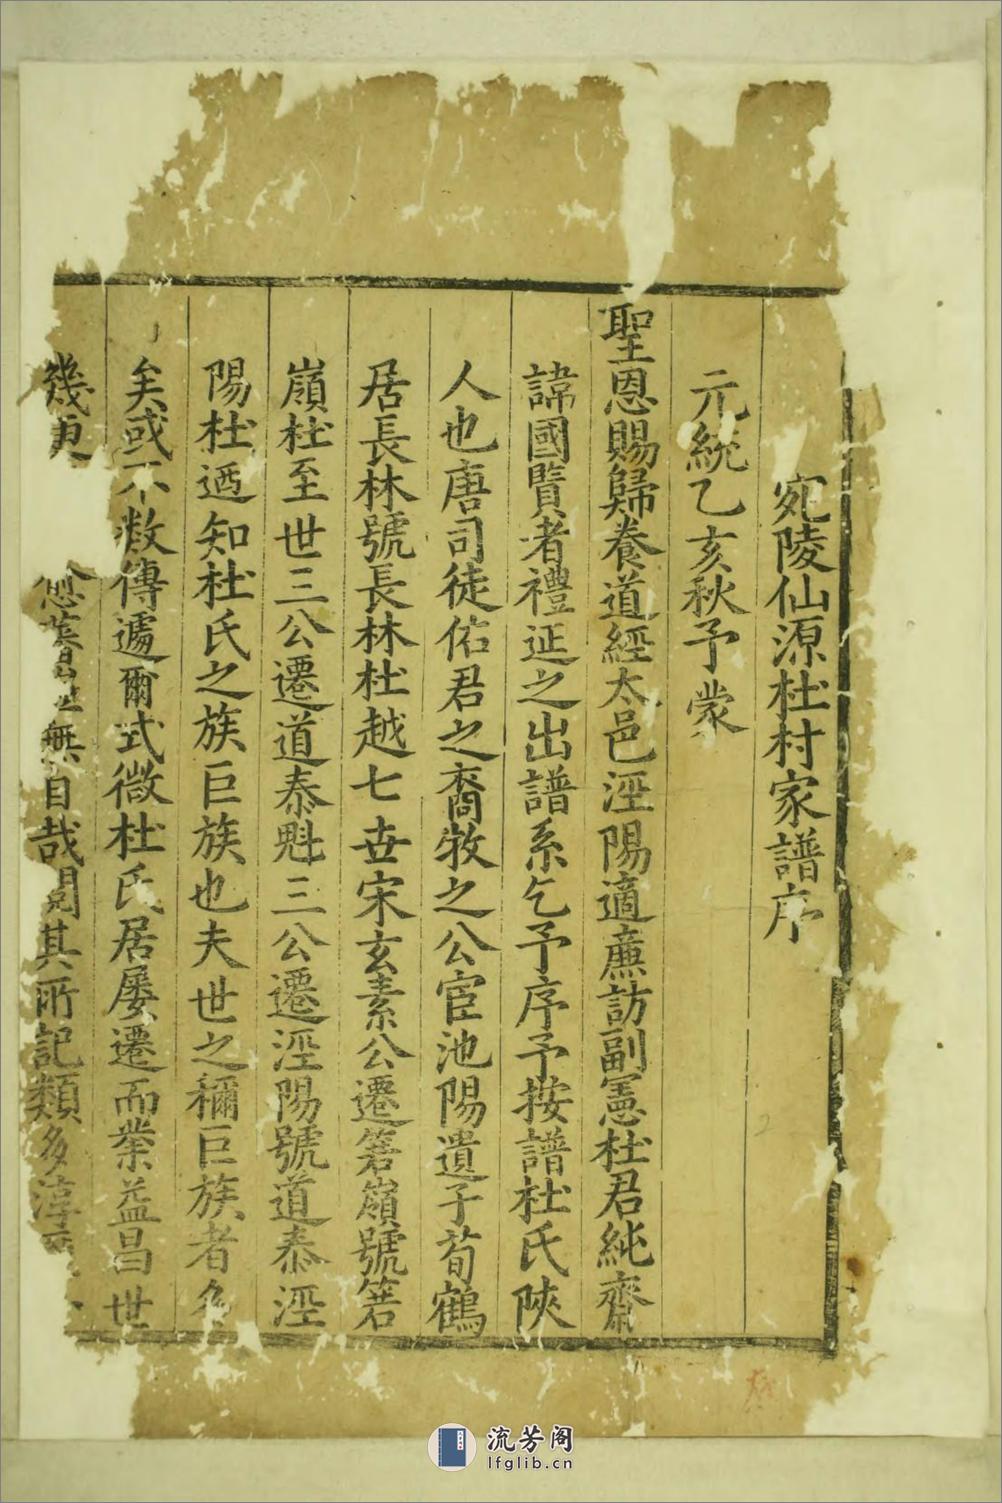 宛陵仙源杜村家譜序
元統乙亥秋予蒙
聖恩賜歸養道經太邑涇陽適廉訪副憲杜君純齋
諱國賢者禮延之出譜系乞予序予按譜杜氏陝
人也唐司徒佑君之裔牧之公宦池陽遺子荀鶴
居長林號長林杜越七世宋玄素公遷箬嶺號箬
嶺杜至世三公遷道泰魁三公遷涇陽號道泰涇
陽杜迺知杜氏之族巨族也夫世之稱巨族者多
矣或不數傳遽爾式微杜氏居屢遷而業益昌世
幾更
無自哉閱其所記類多淳
流芳阁
lfglib.cn